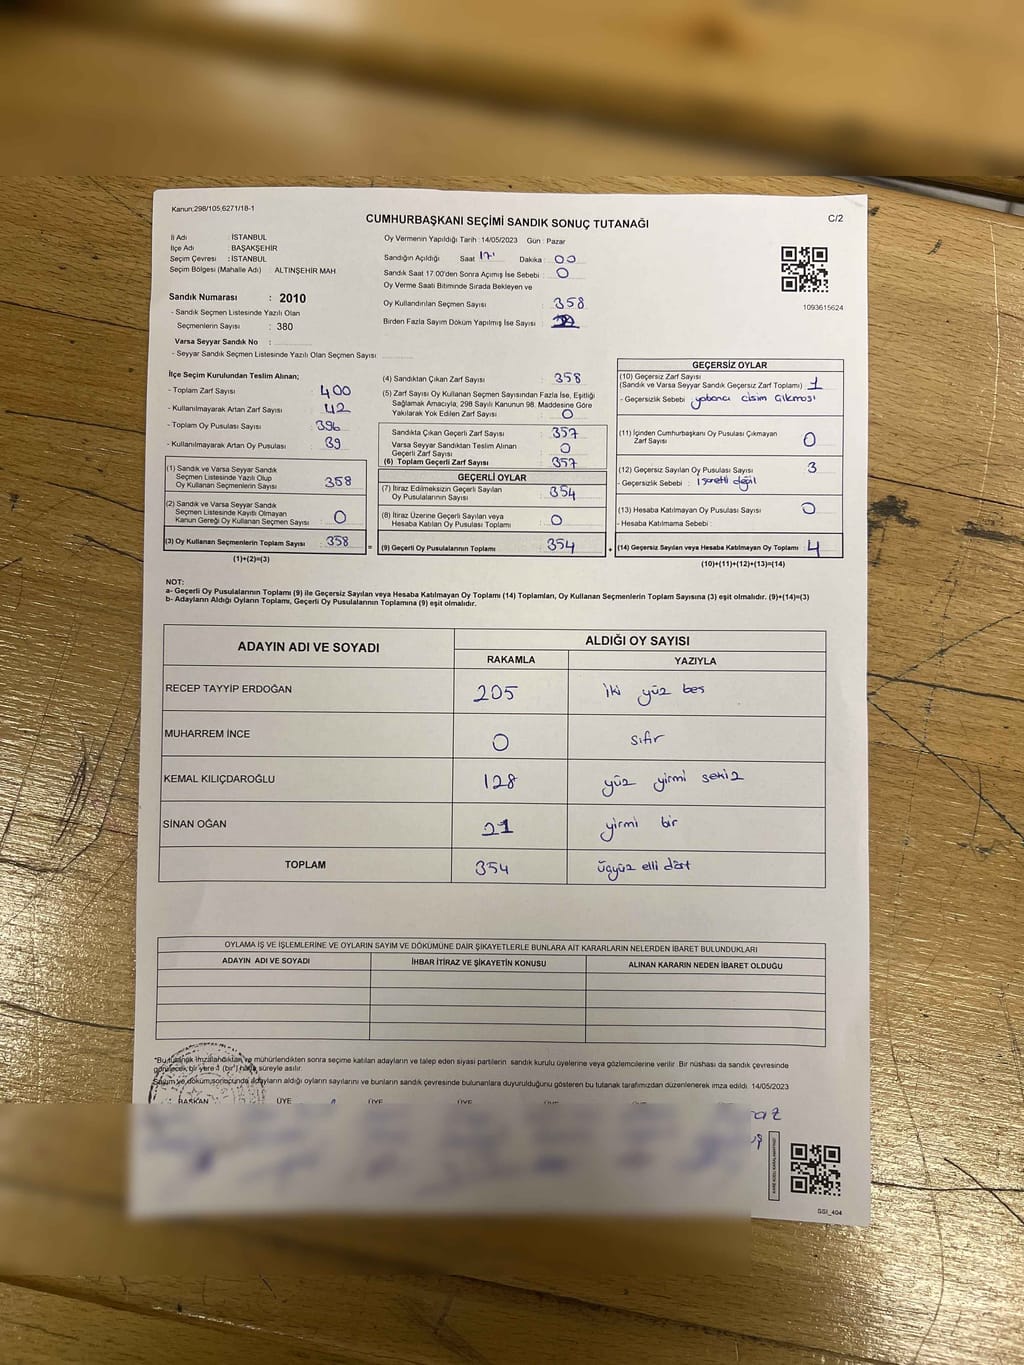 Kanun:298/105;6271/18-1
CUMHURBAŞKANI SEÇİMİ SANDIK SONUÇ TUTANAĞI
C/2
İl Adı : İSTANBUL
İlçe Adı : BAŞAKŞEHİR
Seçim Çevresi : İSTANBUL
Seçim Bölgesi (Mahalle Adı) : ALTINŞEHİR MAH
Sandık Numarası : 2010
- Sandık Seçmen Listesinde Yazılı Olan
Seçmenlerin Sayısı : 380
Varsa Seyyar Sandık No :
- Seyyar Sandık Seçmen Listesinde Yazılı Olan Seçmen Sayısı
Oy Vermenin Yapıldığı Tarih : 14/05/2023 Gün : Pazar
Sandığın Açıldığı Saat 17 Dakika : 00
Sandık Saat 17:00'den Sonra Açımış İse Sebebi : 0
Oy Verme Saati Bitiminde Sırada Bekleyen ve
Oy Kullandırılan Seçmen Sayısı : 358
Birden Fazla Sayım Döküm Yapılmış İse Sayısı :
1093615624
İlçe Seçim Kurulundan Teslim Alınan;
- Toplam Zarf Sayısı : 400
- Kullanılmayarak Artan Zarf Sayısı : 42
- Toplam Oy Pusulası Sayısı : 396
- Kullanılmayarak Artan Oy Pusulası : 39
(1) Sandık ve Varsa Seyyar Sandık
Seçmen Listesinde Yazılı Olup
Oy Kullanan Seçmenlerin Sayısı : 358
(2) Sandık ve Varsa Seyyar Sandık
Seçmen Listesinde Kayıtlı Olmayan
Kanun Gereği Oy Kullanan Seçmen Sayısı : 0
(3) Oy Kullanan Seçmenlerin Toplam Sayısı : 358
(1)+(2)=(3)
(4) Sandıktan Çıkan Zarf Sayısı : 358
(5) Zarf Sayısı Oy Kullanan Seçmen Sayısından Fazla İse, Eşitliği
Sağlamak Amacıyla, 298 Sayılı Kanunun 98. Maddesine Göre
Yakılarak Yok Edilen Zarf Sayısı : 0
Sandıkta Çıkan Geçerli Zarf Sayısı : 357
Varsa Seyyar Sandıktan Teslim Alınan
Geçerli Zarf Sayısı : 0
(6) Toplam Geçerli Zarf Sayısı : 357
GEÇERLİ OYLAR
(7) İtiraz Edilmeksizin Geçerli Sayılan
Oy Pusulalarının Sayısı : 354
(8) İtiraz Üzerine Geçerli Sayılan veya
Hesaba Katılan Oy Pusulası Toplamı : 0
= (9) Geçerli Oy Pusulalarının Toplamı : 354
GEÇERSİZ OYLAR
(10) Geçersiz Zarf Sayısı
(Sandık ve Varsa Seyyar Sandık Geçersiz Zarf Toplamı) : 1
- Geçersizlik Sebebi : yabancı cisim çıkması
(11) İçinden Cumhurbaşkanı Oy Pusulası Çıkmayan
Zarf Sayısı : 0
(12) Geçersiz Sayılan Oy Pusulası Sayısı : 3
- Geçersizlik Sebebi : İşaretli değil
(13) Hesaba Katılmayan Oy Pusulası Sayısı : 0
- Hesaba Katılmama Sebebi :
+ (14) Geçersiz Sayılan veya Hesaba Katılmayan Oy Toplamı : 4
(10)+(11)+(12)+(13)=(14)
NOT:
a- Geçerli Oy Pusulalarının Toplamı (9) ile Geçersiz Sayılan veya Hesaba Katılmayan Oy Toplamı (14) Toplamları, Oy Kullanan Seçmenlerin Toplam Sayısına (3) eşit olmalıdır. (9)+(14)=(3)
b- Adayların Aldığı Oyların Toplamı, Geçerli Oy Pusulalarının Toplamına (9) eşit olmalıdır.
ADAYIN ADI VE SOYADI
ALDIĞI OY SAYISI
RAKAMLA YAZIYLA
RECEP TAYYİP ERDOĞAN 205 iki yüz beş
MUHARREM İNCE 0 sıfır
KEMAL KILIÇDAROĞLU 128 yüz yirmi sekiz
SİNAN OĞAN 21 yirmi bir
TOPLAM 354 üçyüz elli dört
OYLAMA İŞ VE İŞLEMLERİNE VE OYLARIN SAYIM VE DÖKÜMÜNE DAİR ŞİKAYETLERLE BUNLARA AİT KARARLARIN NELERDEN İBARET BULUNDUKLARI
ADAYIN ADI VE SOYADI İHBAR İTİRAZ VE ŞİKAYETİN KONUSU ALINAN KARARIN NEDEN İBARET OLDUĞU
*Bu tutanak imzalandıktan ve mühürlendikten sonra seçime katılan adayların ve talep eden siyasi partilerin sandık kurulu üyelerine veya gözlemcilerine verilir. Bir nüshası da sandık çevresinde
görülecek bir yere 1 (bir) hafta süreyle asılır.
Sayım ve döküm sonucunda adayların aldığı oyların sayılarını ve bunların sandık çevresinde bulunanlara duyurulduğunu gösteren bu tutanak tarafımızdan düzenlenerek imza edildi. 14/05/2023
BAŞKAN ÜYE ÜYE ÜYE
SSI_404